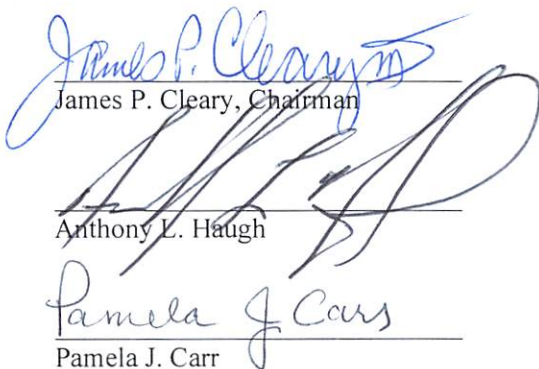 James P. Cleary III
James P. Cleary, Chairman
Anthony L. Haugh
Pamela J Carr
Pamela J. Carr